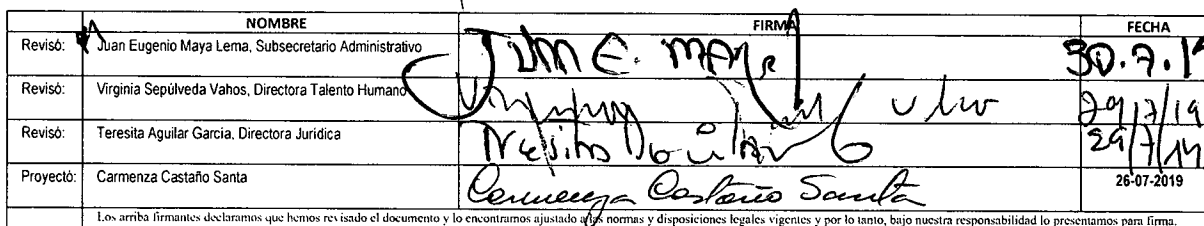 NOMBRE FIRMA FECHA
Revisó: Juan Eugenio Maya Lema, Subsecretario Administrativo 30.7.1
Revisó: Virginia Sepúlveda Vahos, Directora Talento Humano 29/7/19
Revisó: Teresita Aguilar Garcia, Directora Juridica Teresita Aguilar 29/7/19
Proyectó: Carmenza Castaño Santa Carmenza Castaño Santa 26-07-2019
Los arriba firmantes declaramos que hemos revisado el documento y lo encontramos ajustado a las normas y disposiciones legales vigentes y por lo tanto, bajo nuestra responsabilidad lo presentamos para firma.